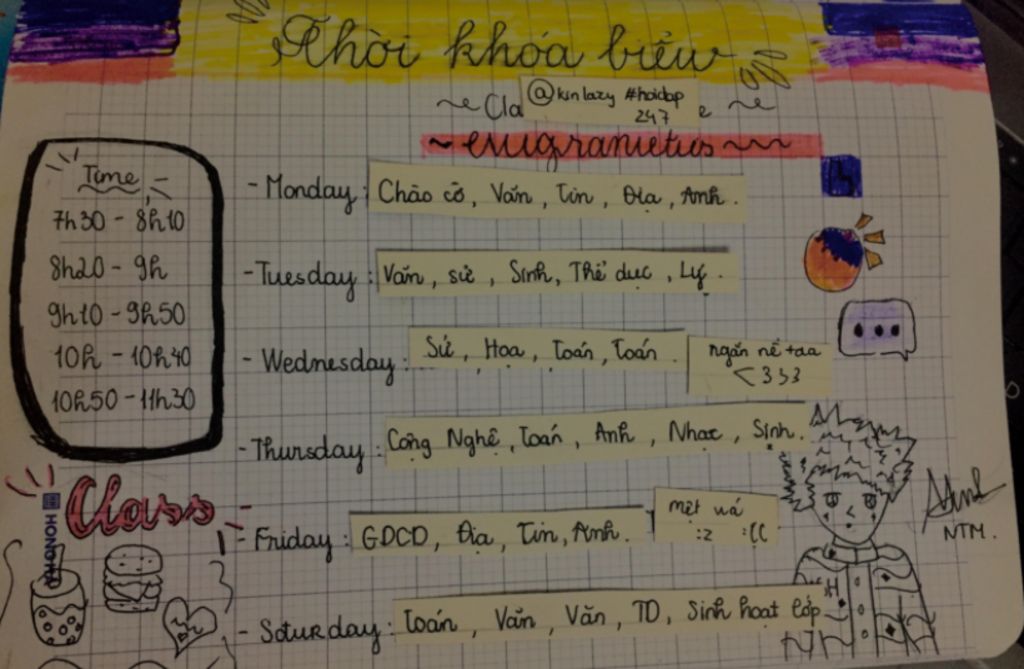 Thời khóa biểu
@kinlazy #hoidap
247
Time
7h30 - 8h10
8h20 - 9h
9h10 - 9h50
10h - 10h40
10h50 - 11h30
- Monday : Chào cờ, Văn, Tin, Địa, Anh.
- Tuesday : Văn, sử, Sinh, Thể dục, Lý.
- Wednesday : Sử, Họa, Toán, Toán.
<3 3>3
- Thursday : Công Nghệ, Toán, Anh, Nhạc, Sinh.
- Friday : GDCD, Địa, Tin, Anh.
mệt uá
:z :((
- Saturday : Toán, Văn, Văn, TD, Sinh hoạt lớp
Class
HONGHA
NTM.